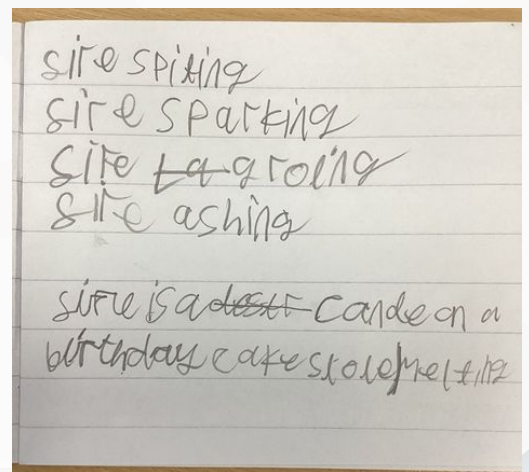 fire spiting
fire sparking
fire groing
fire ashing
fire is a cande on a
birthday cake slole melting